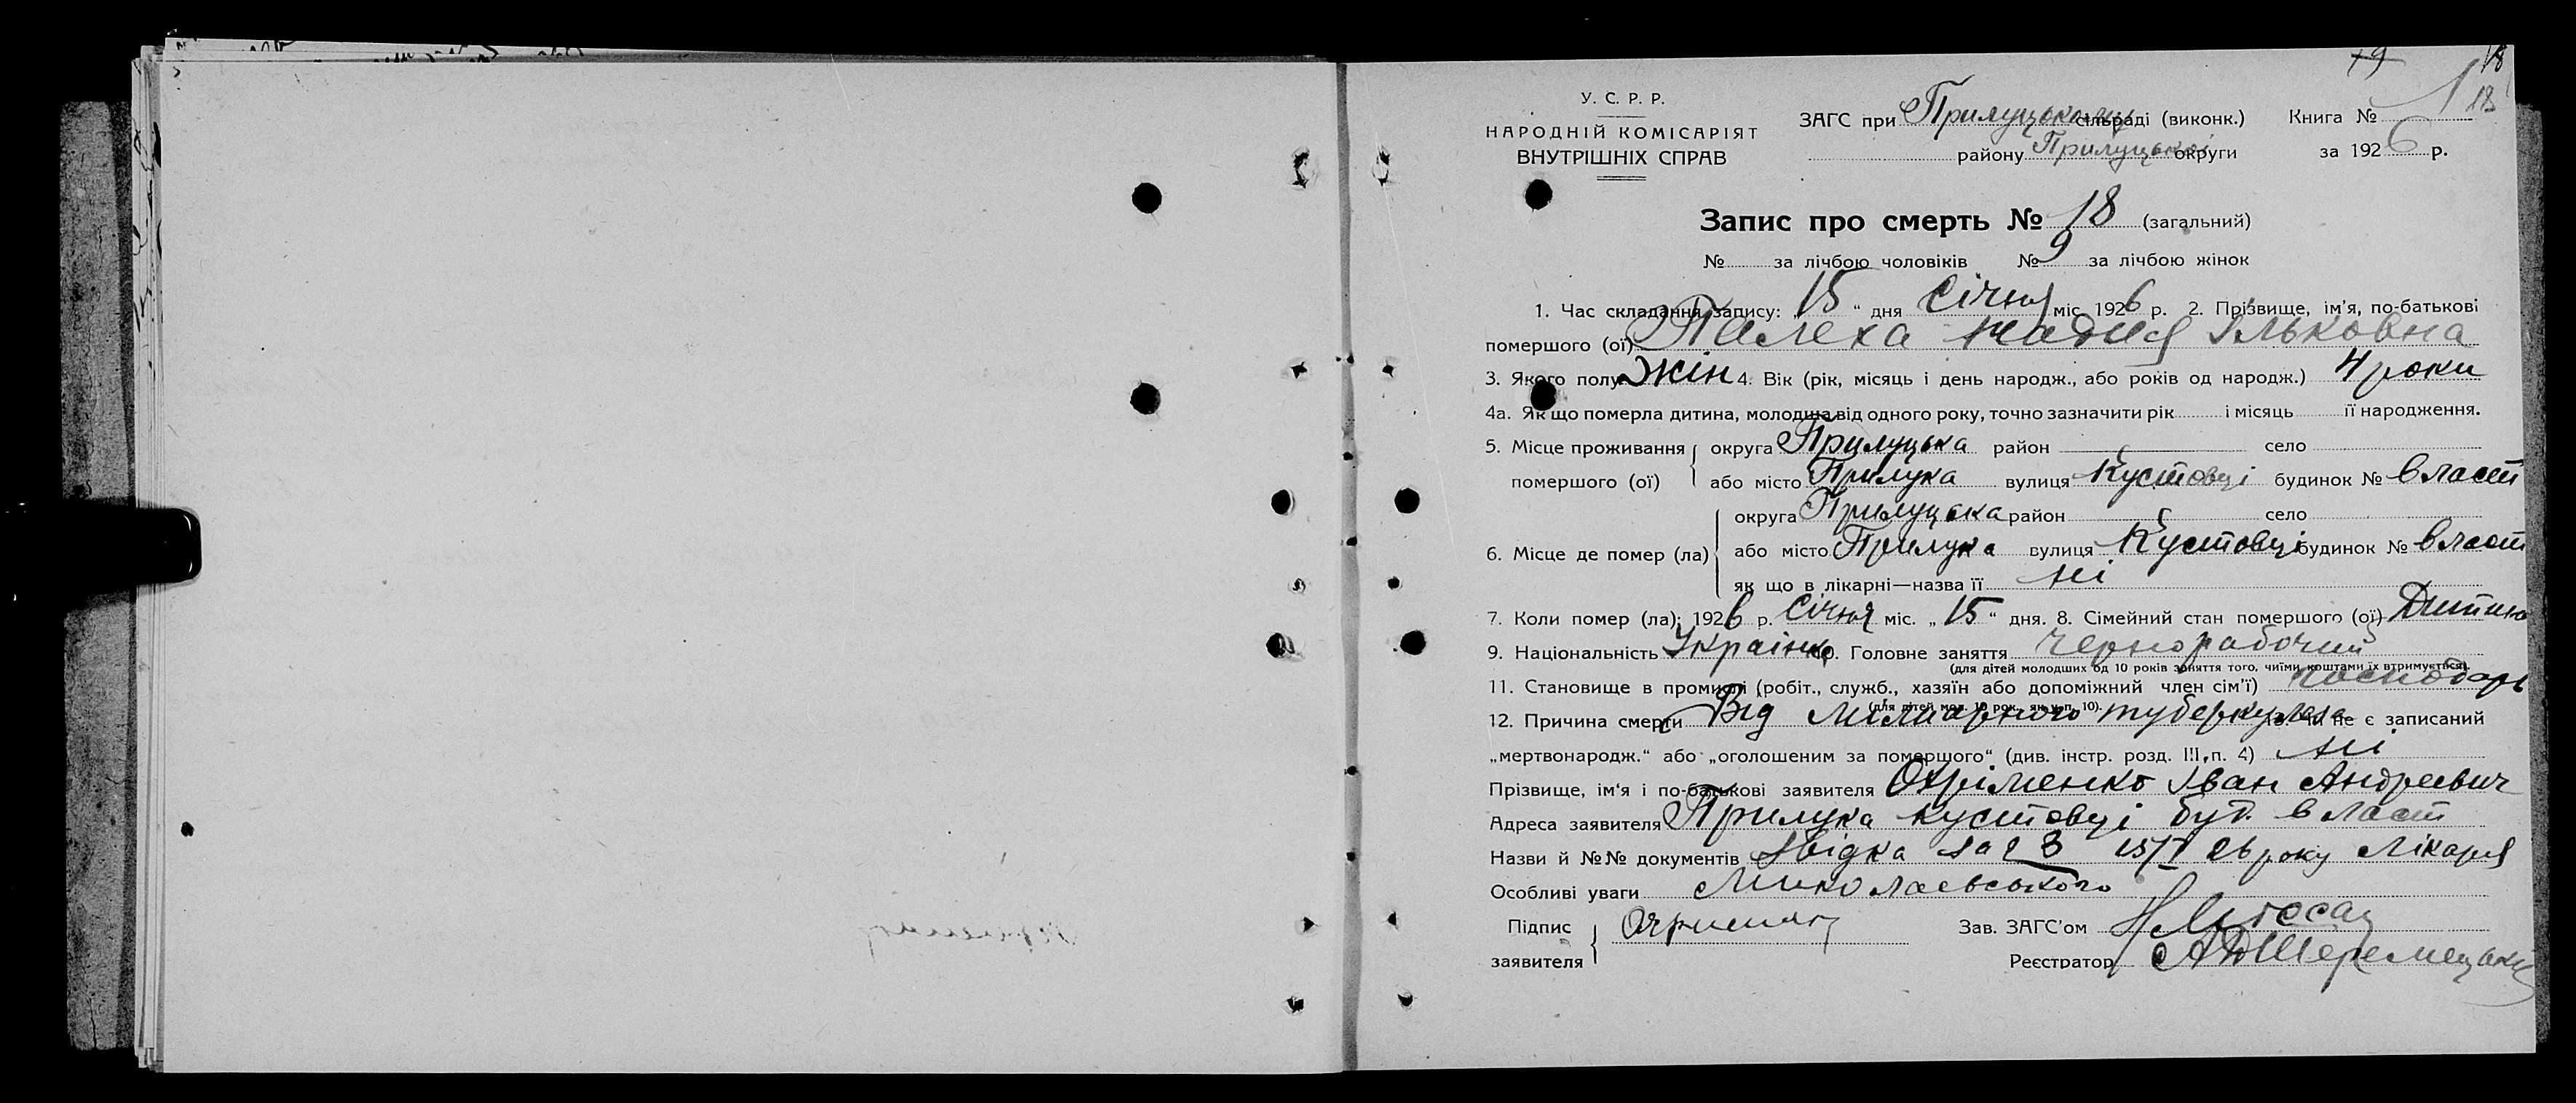 79 18
У. С. Р. Р.
НАРОДНІЙ КОМІСАРІЯТ
ВНУТРІШНІХ СПРАВ
ЗАГС при Прилуцькому сільраді (виконк.) Книга № 1 18
району Прилуцької округи за 1926 р.
Запис про смерть № 18 (загальний)
№ за лічбою чоловіків № 9 за лічбою жінок
1. Час складання запису: „15“ дня Січня міс. 1926 р. 2. Прізвище, ім'я, по-батькові
помершого (ої) Палеха Надия Ільковна
3. Якого полу Жін 4. Вік (рік, місяць і день народж., або років од народж.) 4 роки
4а. Як що померла дитина, молодша від одного року, точно зазначити рік і місяць її народження.
5. Місце проживання помершого (ої) { округа Прилуцька район — село
або місто Прилука вулиця Кустовці будинок № власт
6. Місце де помер (ла) { округа Прилуцька район село
або місто Прилука вулиця Кустовці будинок № власт
як що в лікарні—назва її ні
7. Коли помер (ла); 1926 р. Січня міс. „15“ дня. 8. Сімейний стан помершого (ої) Дитина
9. Національність Українка 10. Головне заняття чернорабочий
(для дітей молодших од 10 років заняття того, чиїми коштами їх втримується).
11. Становище в промислі (робіт., служб., хазяїн або допоміжний член сім'ї) господарь
(для дітей мол. 10 рок., як у п. 10).
12. Причина смерти Від миліарного туберкулеза 13. Чи не є записаний
„мертвонародж.“ або „оголошеним за помершого“ (див. інстр. розд. III, п. 4) ні
Прізвище, ім'я і по-батькові заявителя Охріменко Іван Андреевич
Адреса заявителя Прилука Кустовці буд. власт
Назви й №№ документів Звідка за № 3 15/I 26 року Лікаря
Особливі уваги Миколаевського
Підпис заявителя {
Зав. ЗАГС'ом
Реєстратор Шеремецький